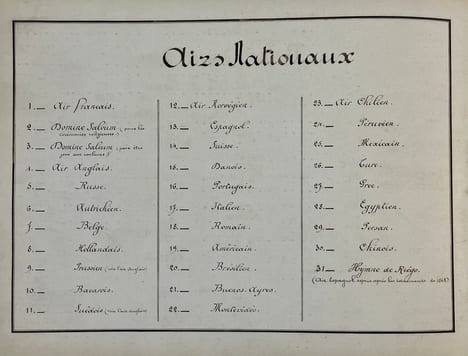 Airs Nationaux
1. — Air français.
2. — Domine Salvum (pour les
cérémonies religieuses)
3. — Domine Salvum
4. — Air Anglais.
5. — Russe.
6. — Autrichien.
7. — Belge.
8. — Hollandais.
9. — Prussien
10. — Bavarois.
11. — Suédois
12. — Air Norvégien.
13. — Espagnol.
14. — Suisse.
15. — Danois.
16. — Portugais.
17. — Italien.
18. — Romain.
19. — Américain.
20. — Brésilien.
21. — Buenos Ayres.
22. — Montevideo.
23. — Air Chilien.
24. — Peruvien.
25. — Mexicain.
26. — Turc.
27. — Grec.
28. — Egyptien.
29. — Persan.
30. — Chinois.
31 — Hymne de Riégo.
(Air Espagnol depuis après les événements de 1868)